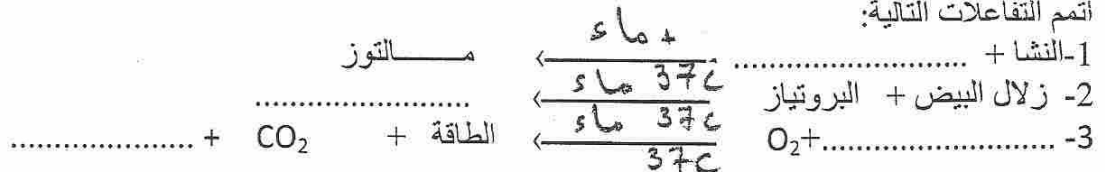 أتمم التفاعلات التالية:
1-النشا + .............................. + ماء 37c ← مـــالتوز
2- زلال البيض + البروتياز ماء 37c ← ..........................
3- ..............................+O₂ 37c ← الطاقة + CO₂ + ......................